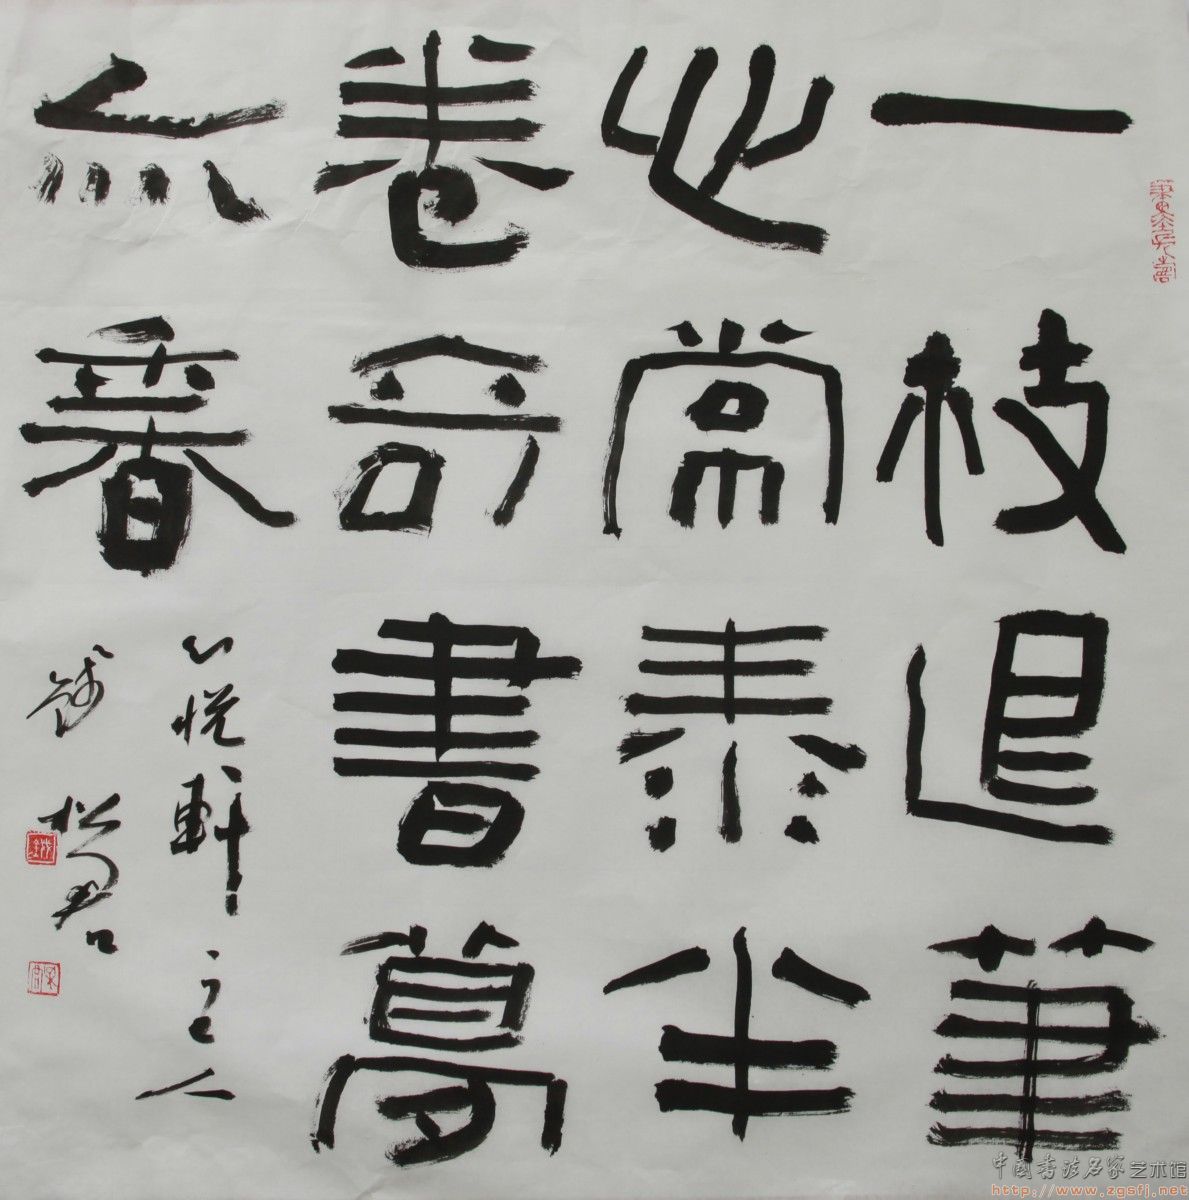 一枝退筆
心常泰半
卷奇書夢
亦香
心悦軒主人
錢松君
中國書法名家艺术馆
http://www.zgsfj.net